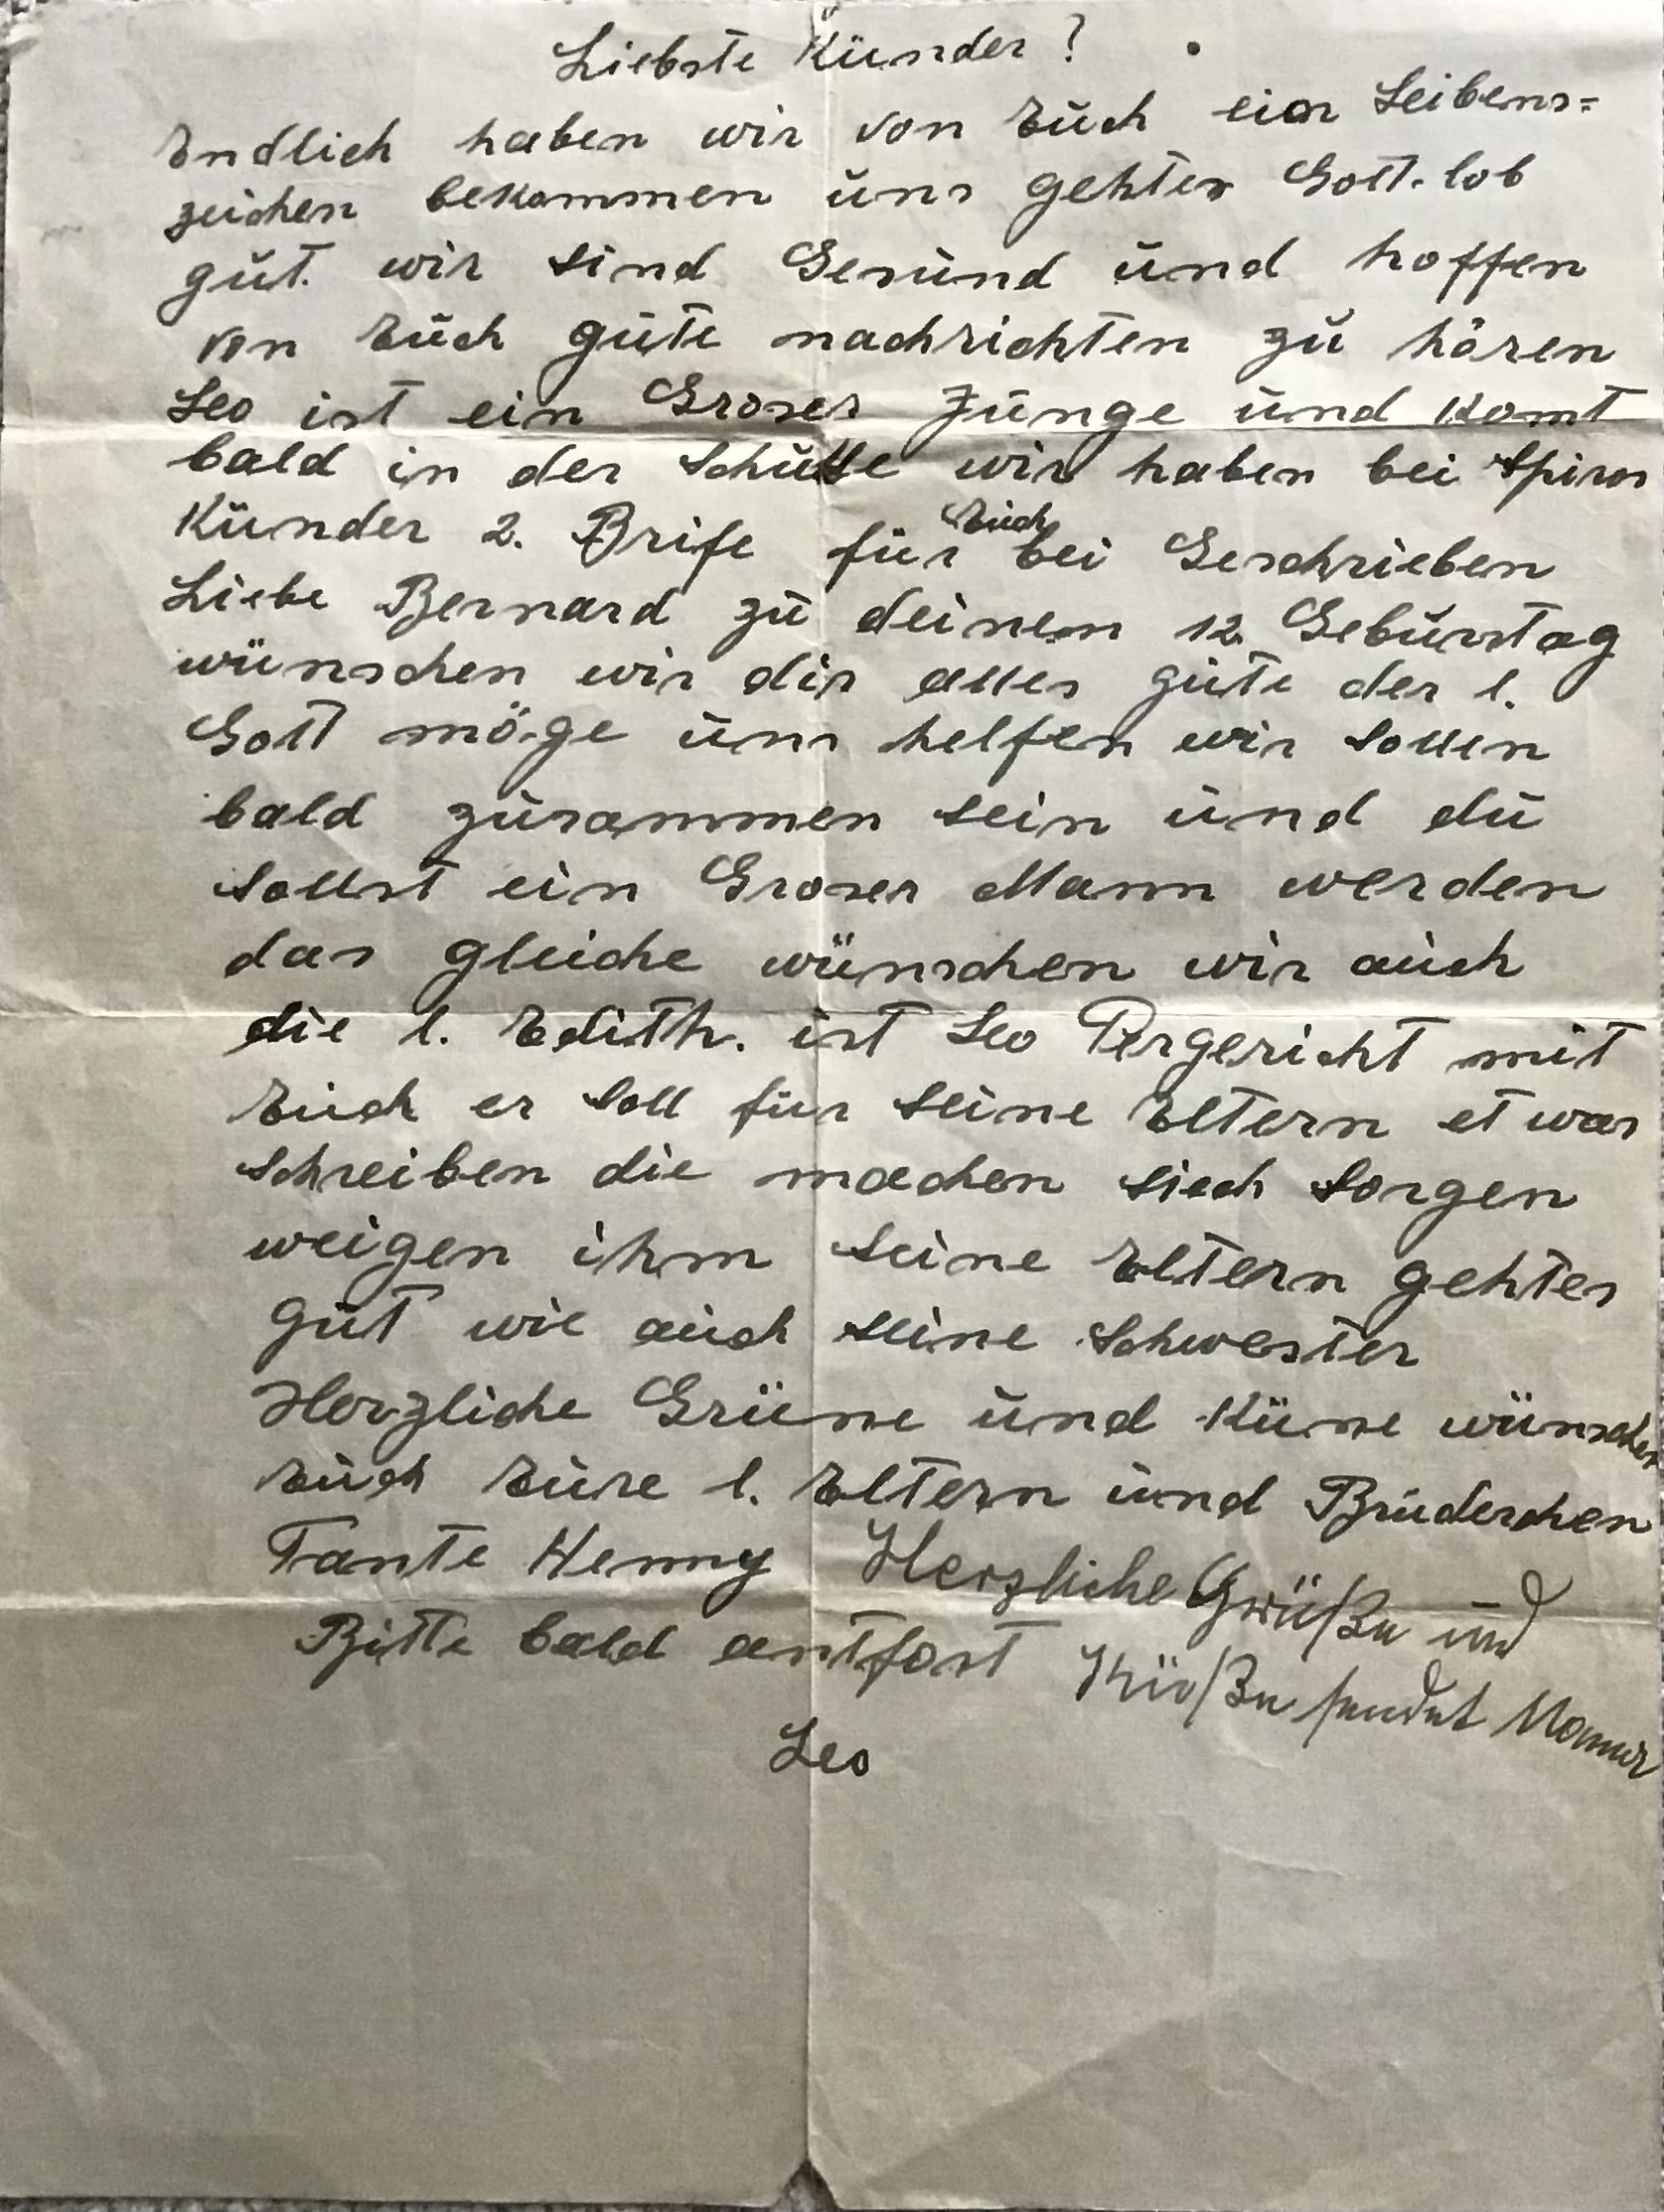 Liebste Künder?
Endlich haben wir von Euch ein Leibens=
zeichen bekommen uns gehtes Gott. lob
gut. wir sind Gesund und hoffen
von Euch gute nachrichten zu hören
Leo ist ein Groser Junge und komt
bald in der Schulle wir haben bei Spiros
Künder 2. Brife für Euch bei Geschrieben
Liebe Bernard zu deinem 12. Geburstag
wünschen wir dir alles gute der l.
Gott möge uns helfen wir sollen
bald zusammen sein und du
sollst ein Groser Mann werden
das gleiche wünschen wir auch
die l. Edith. ist Leo Pergericht mit
Euch er soll für seine Eltern etwas
schreiben die machen siech sorgen
weigen ihm seine Eltern gehtes
gut wie auch seine schwester
Herzliche Grüse und Küse wünschen
Euch Eure l. Eltern und Brüderchen
Tante Henny Herzliche Grüße und
Bitte bald antfort Küße sendet
Leo